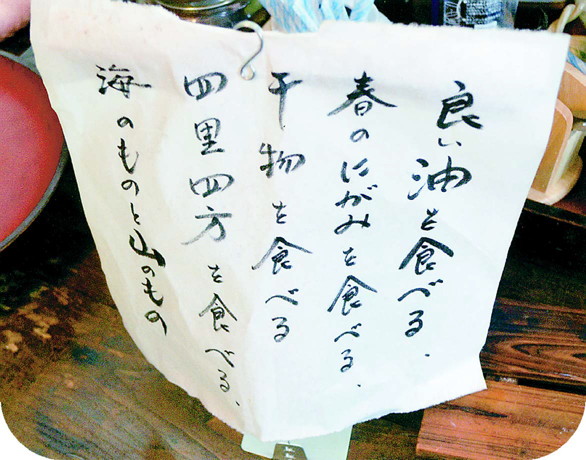 良い油を食べる、
春のにがみを食べる、
干物を食べる
四里四方を食べる、
海のものと山のもの